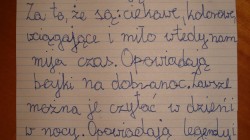 Za to, że są: ciekawe, kolorowe,
wciągające i miło wtedy nam
mija czas. Opowiadają
bajki na dobranoc. Zawsze
można je czytać w dzień i
w nocy. Opowiadają legendy